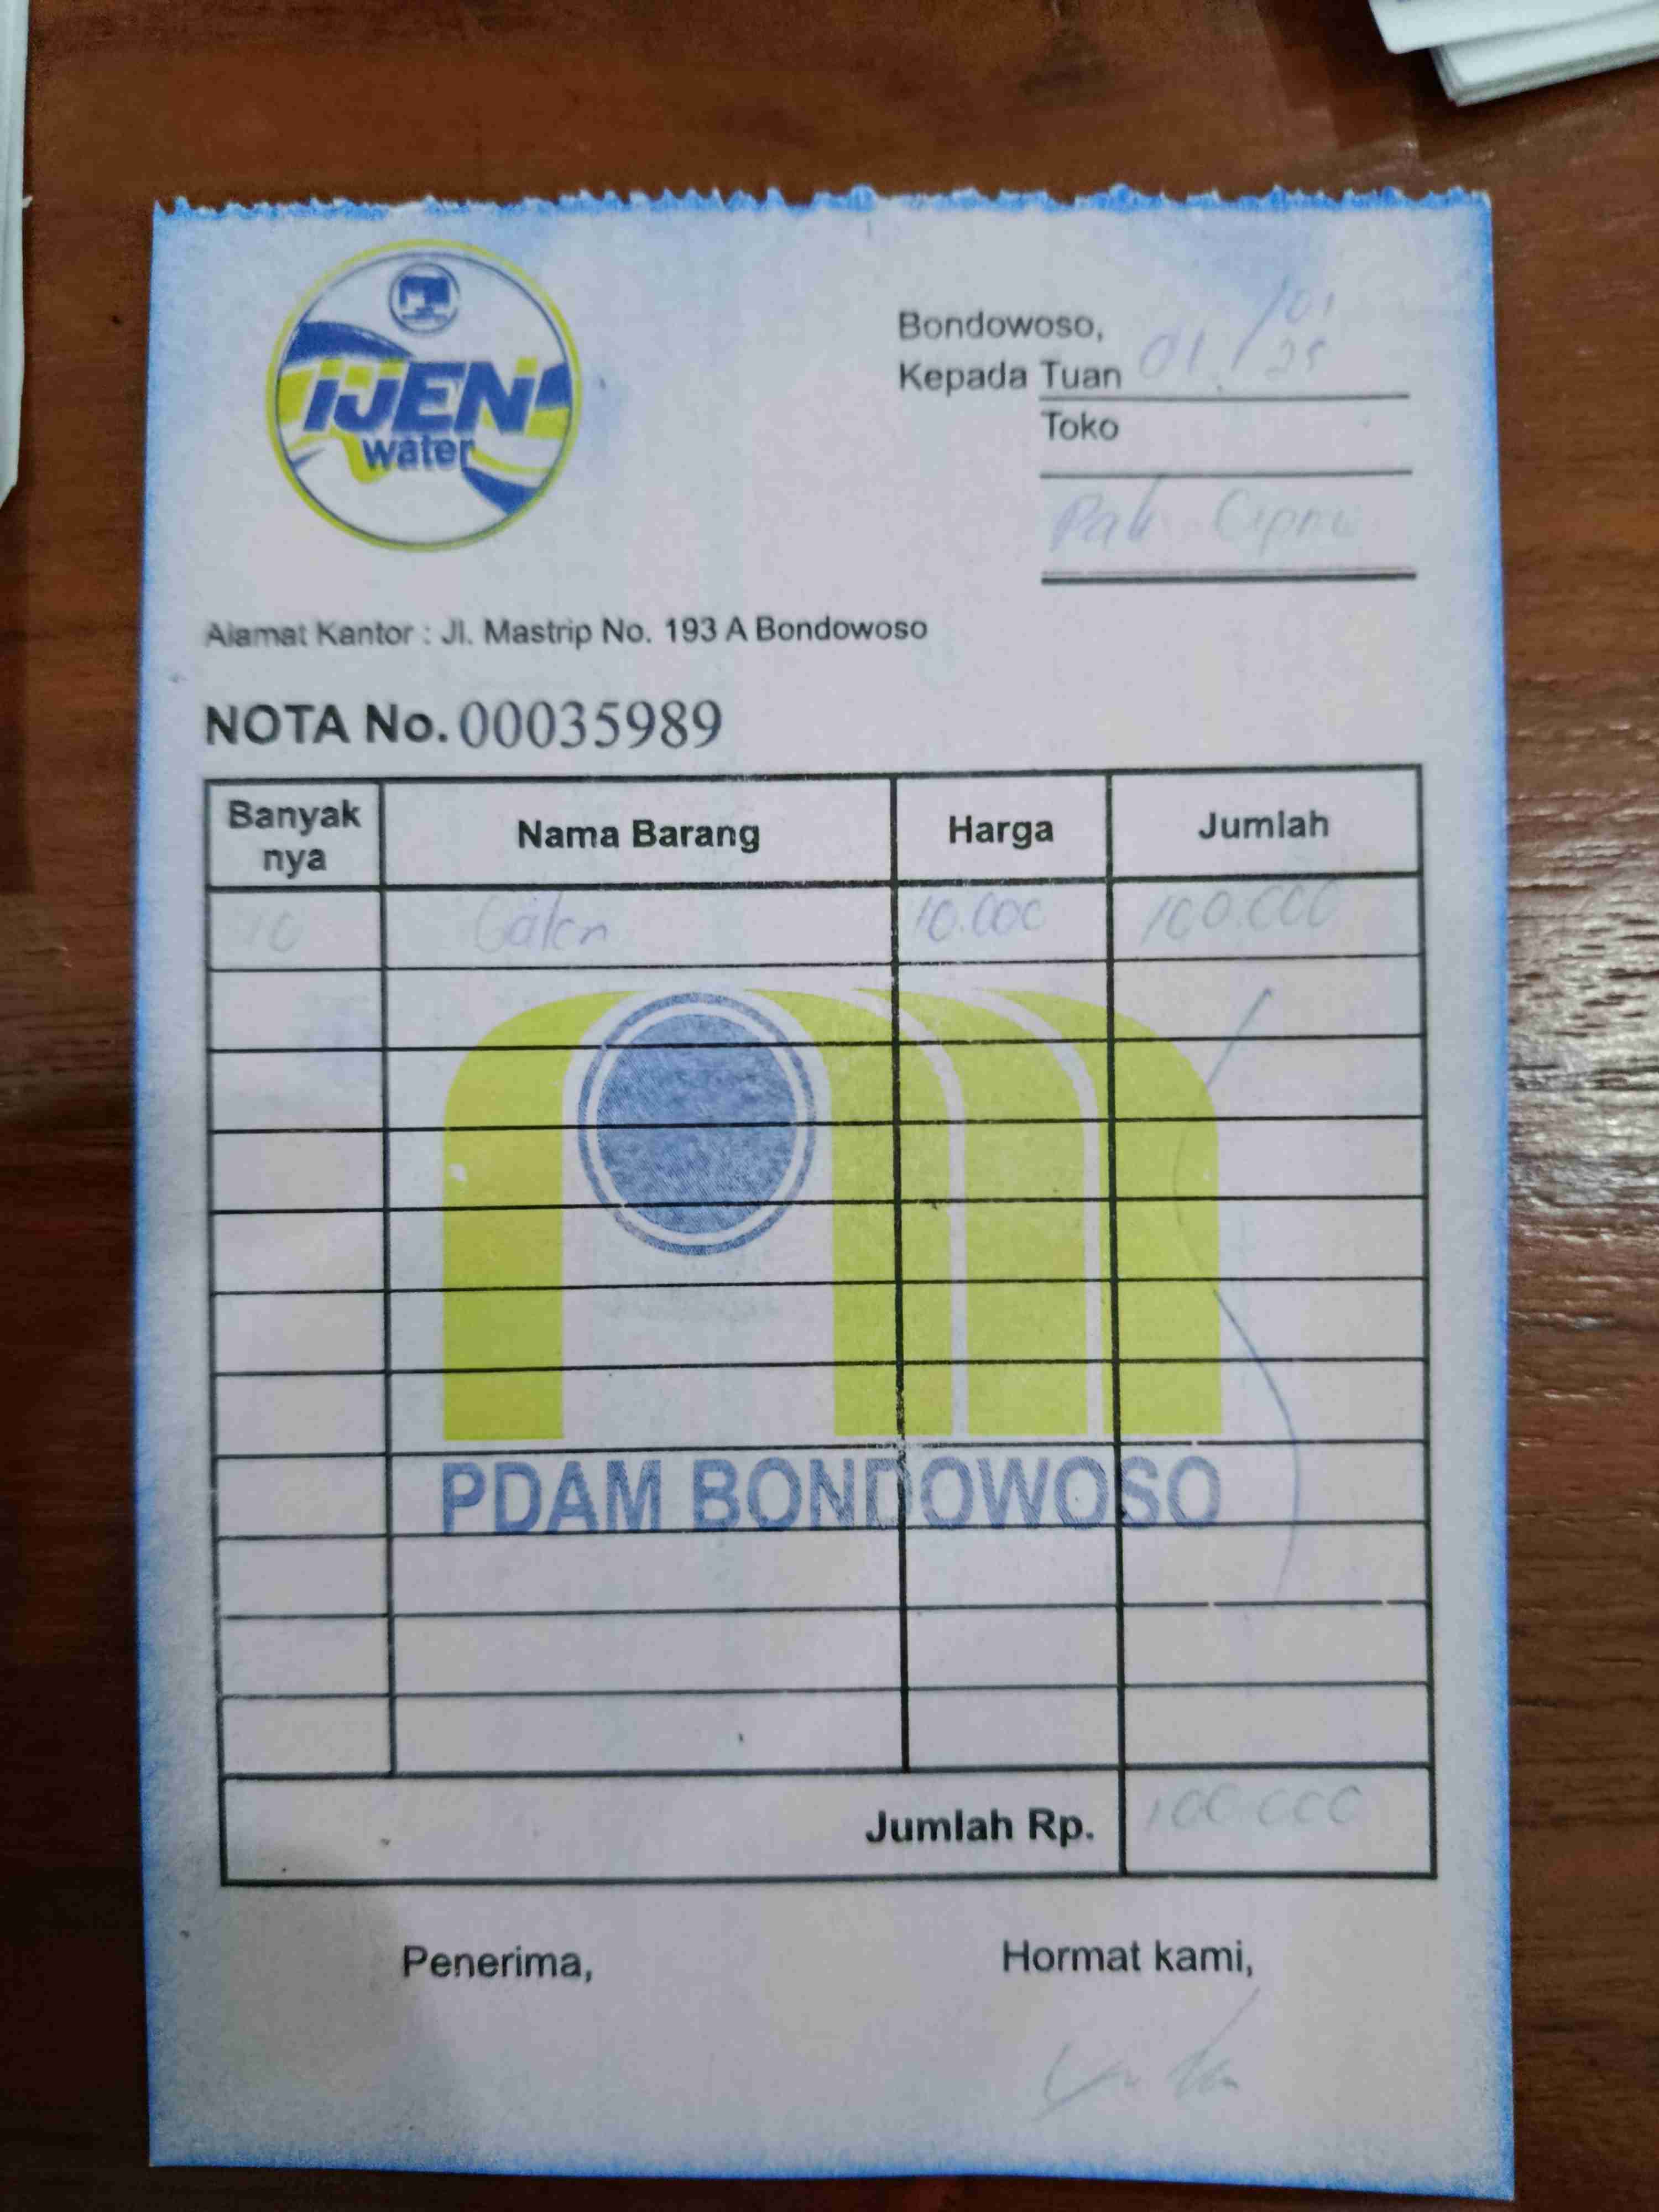 IJEN
water
Bondowoso, 01/01/25
Kepada Tuan
Toko
Pak
Alamat Kantor : Jl. Mastrip No. 193 A Bondowoso
NOTA No. 00035989
Banyak nya Nama Barang Harga Jumlah
10 Galon 10.000 100.000
PDAM BONDOWOSO
Jumlah Rp. 100.000
Penerima, Hormat kami,